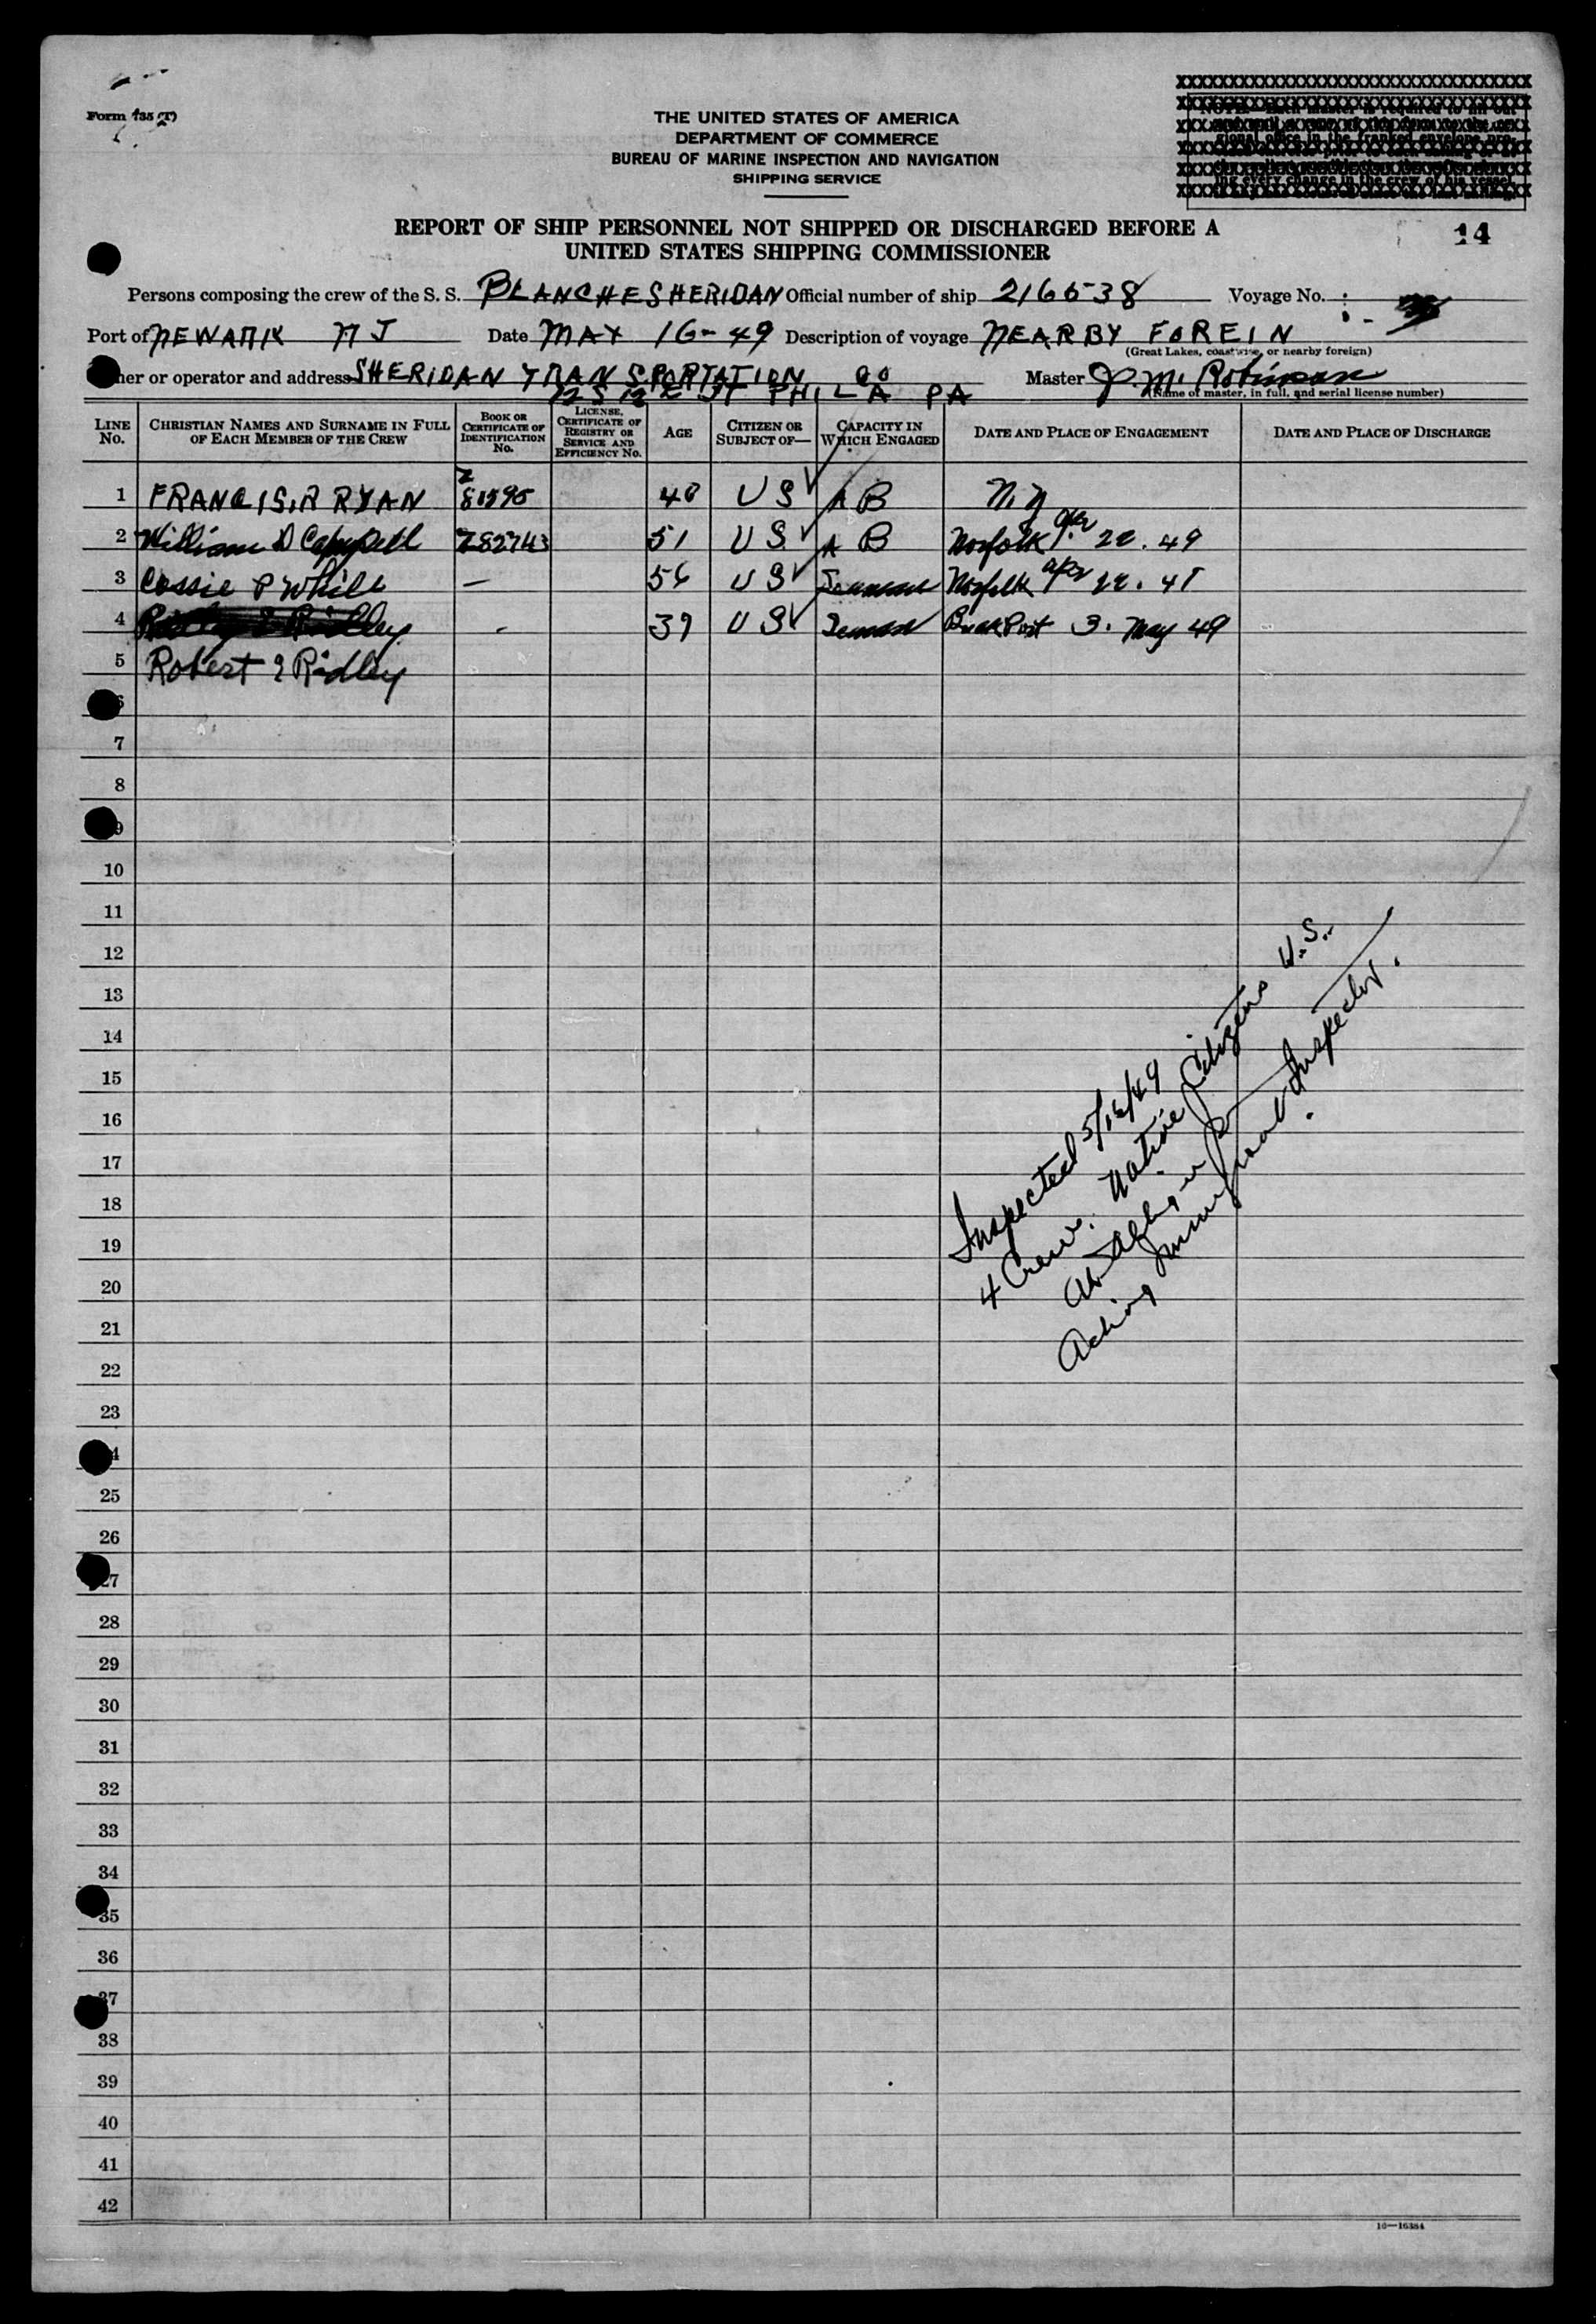 Form 735 (T)
THE UNITED STATES OF AMERICA
DEPARTMENT OF COMMERCE
BUREAU OF MARINE INSPECTION AND NAVIGATION
SHIPPING SERVICE
REPORT OF SHIP PERSONNEL NOT SHIPPED OR DISCHARGED BEFORE A
UNITED STATES SHIPPING COMMISSIONER
14
Persons composing the crew of the S. S. BLANCHE SHERIDAN Official number of ship 216538 Voyage No.
Port of NEWARK N J Date MAY 16-49 Description of voyage NEARBY FOREIN
(Great Lakes, coastwise, or nearby foreign)
ner or operator and address SHERIDAN TRANSPORTATION CO Master J. M. Robinson
ST PHILA PA (Name of master, in full, and serial license number)
LINE No. CHRISTIAN NAMES AND SURNAME IN FULL OF EACH MEMBER OF THE CREW BOOK OR CERTIFICATE OF IDENTIFICATION No. LICENSE, CERTIFICATE OF REGISTRY OR SERVICE AND EFFICIENCY No. AGE CITIZEN OR SUBJECT OF— CAPACITY IN WHICH ENGAGED DATE AND PLACE OF ENGAGEMENT DATE AND PLACE OF DISCHARGE
1 FRANCIS R RYAN Z 81595 48 U S A B N.Y
2 William D Campbell Z82743 51 U S A B Norfolk Apr 22. 49
3 Cossie P White — 56 U S Seaman Norfolk Apr 22. 49
4 Ridley - 39 U S Seaman 3. May 49
5 Robert E Ridley
7
8
9
10
11
12
13
14
15
16
17
18
19
20
21
22
23
4
25
26
27
28
29
30
31
32
33
34
35
36
37
38
39
40
41
42
Inspected 5/16/49
4 Crew. Native Citizens U.S.
Acting Immigrant Inspector.
16—16384